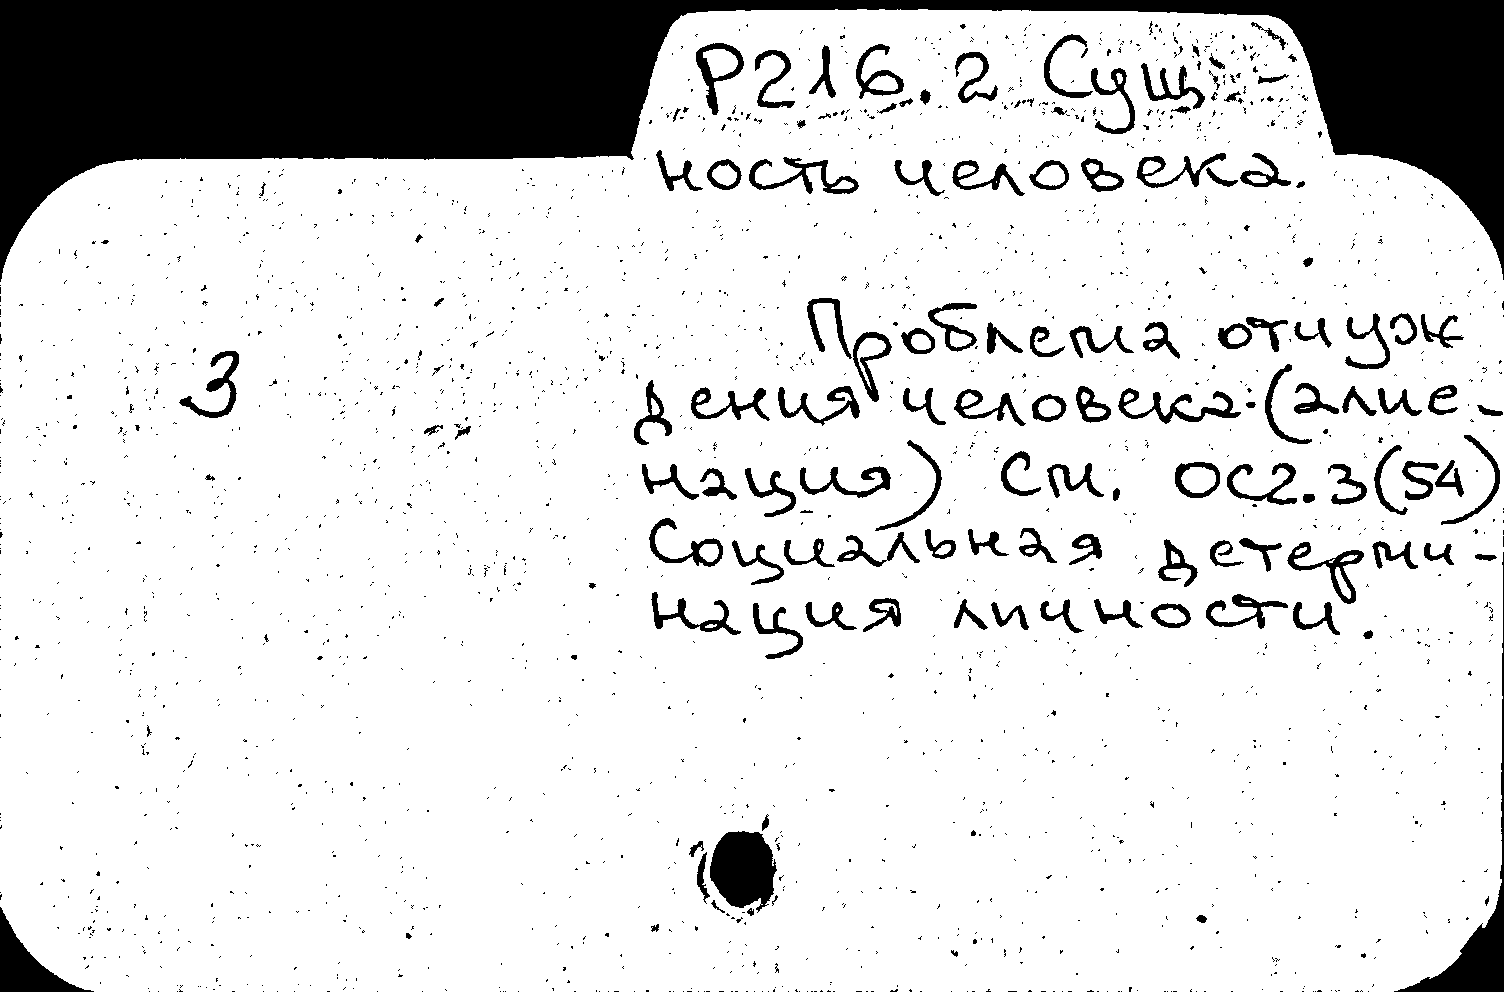 Р216.2 Сущ-
ность человека.
3
Проблема отчуж
дения человека (алие-
нация) См. ОС2.3(54)
Социальная детерми-
нация личности.